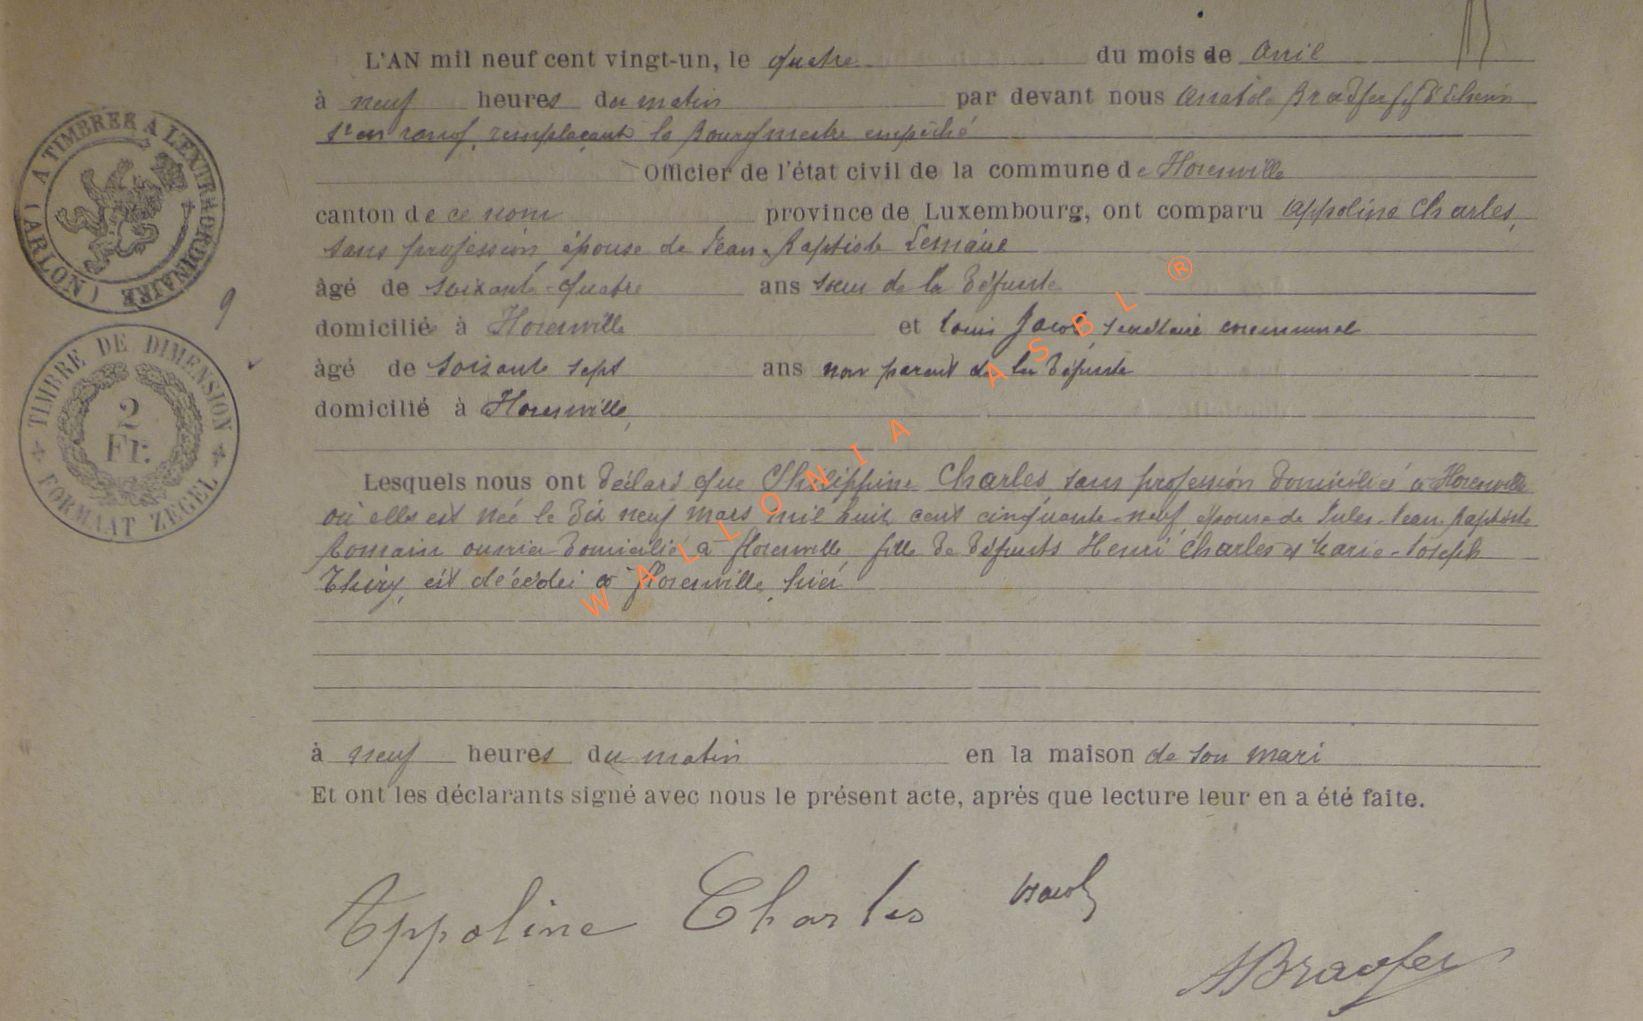 L'AN mil neuf cent vingt-un, le quatre du mois de avril
à neuf heures du matin par devant nous Anatole
en rang, remplaçant le Bourgmestre empêché
Officier de l'état civil de la commune de Florenville
canton de ce nom province de Luxembourg, ont comparu Appoline Charles,
sans profession, épouse de Jean-Baptiste Lemaire
âgé de soixante-quatre ans sœur de la défunte
domiciliée à Florenville et Louis Jacob, secrétaire communal
âgé de soixante sept ans non parent de la défunte
domicilié à Florenville,
Lesquels nous ont déclaré que Philippine Charles, sans profession domiciliée à Florenville
où elle est née le dix neuf mars mil huit cent cinquante-neuf, épouse de Jules-Jean-Baptiste
ouvrier domicilié à Florenville, fille de défunts Henri Charles et Marie-Joseph
Thiry, est décédée à Florenville, hier
à neuf heures du matin en la maison de son mari
Et ont les déclarants signé avec nous le présent acte, après que lecture leur en a été faite.
Appoline Charles
A TIMBRER A L'EXTRAORDINAIRE (ARLON)
9
TIMBRE DE DIMENSION
2
Fr.
FORMAAT ZEGEL
WALLONIA ASBL ®